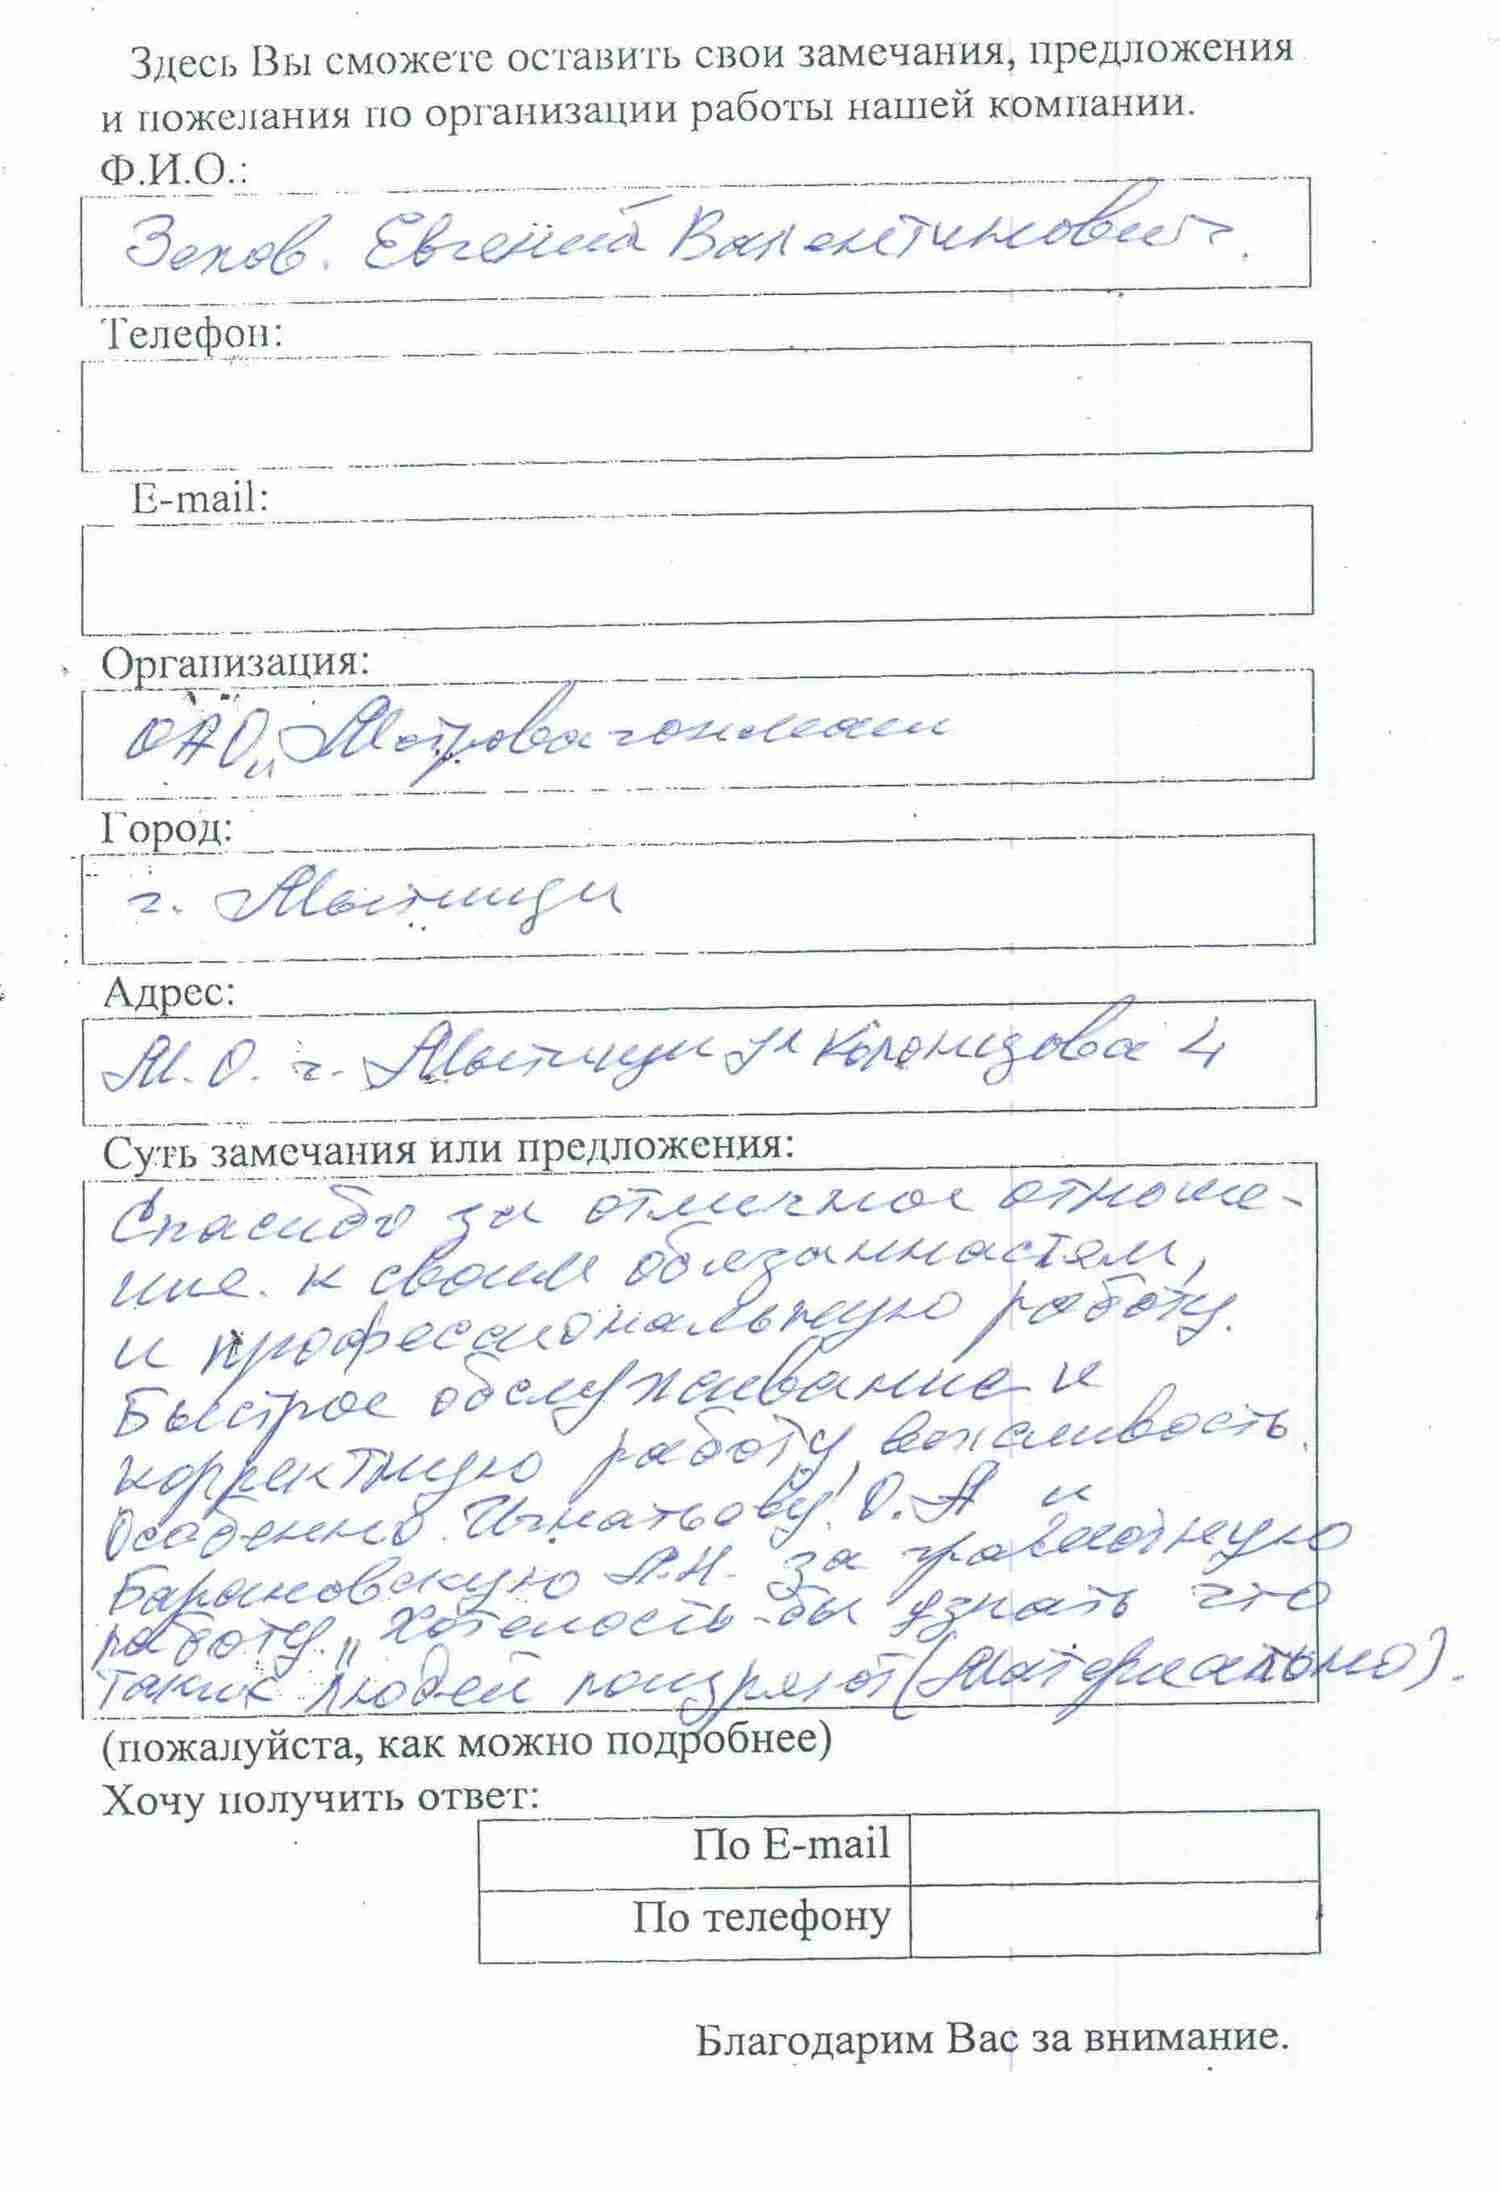 Здесь Вы сможете оставить свои замечания, предложения
и пожелания по организации работы нашей компании.
Ф.И.О.:
Евгений Валентинович.
Телефон:
E-mail:
Организация:
ОАО „Метровагонмаш
Город:
г. Мытищи
Адрес:
М.О. г. Мытищи ул Колонцова 4
Суть замечания или предложения:
Спасибо за отличное отноше-
ние. к своим обязанностям,
и профессиональную работу.
Быстрое обслуживание и
корректную работу, вежливость.
Особенно. Игнатьову О.А и
Барановскую А.Н. за грамотную
работу.„ Хотелость-бы узнать что
таких людей поизряют (Материально).
(пожалуйста, как можно подробнее)
Хочу получить ответ:
По E-mail
По телефону
Благодарим Вас за внимание.